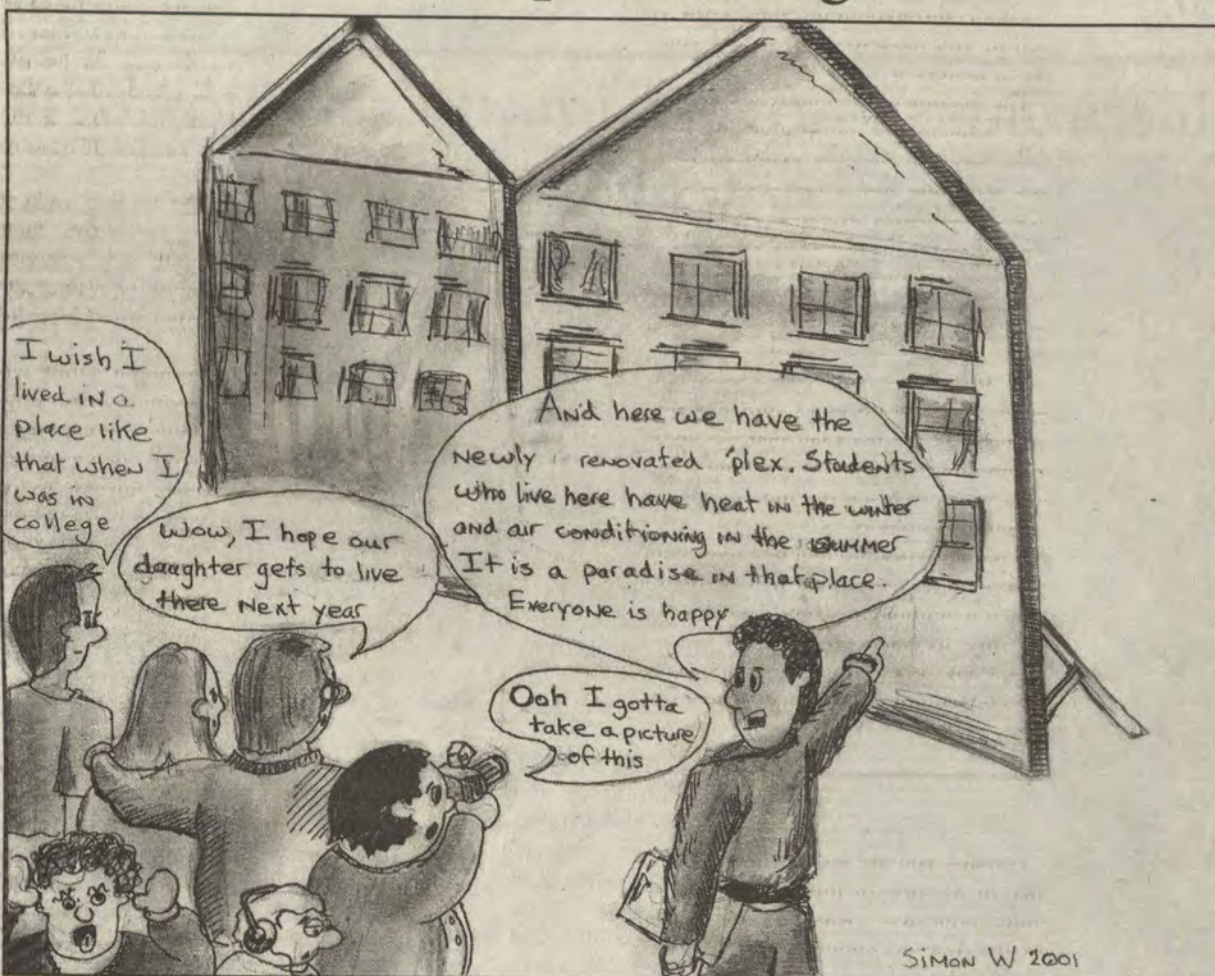 I wish I
lived in a
place like
that when I
was in
college
Wow, I hope our
daughter gets to live
there next year
And here we have the
newly renovated 'plex. Students
who live here have heat in the winter
and air conditioning in the summer
It is a paradise in that place.
Everyone is happy
Ooh I gotta
take a picture
of this
SIMON W 2001